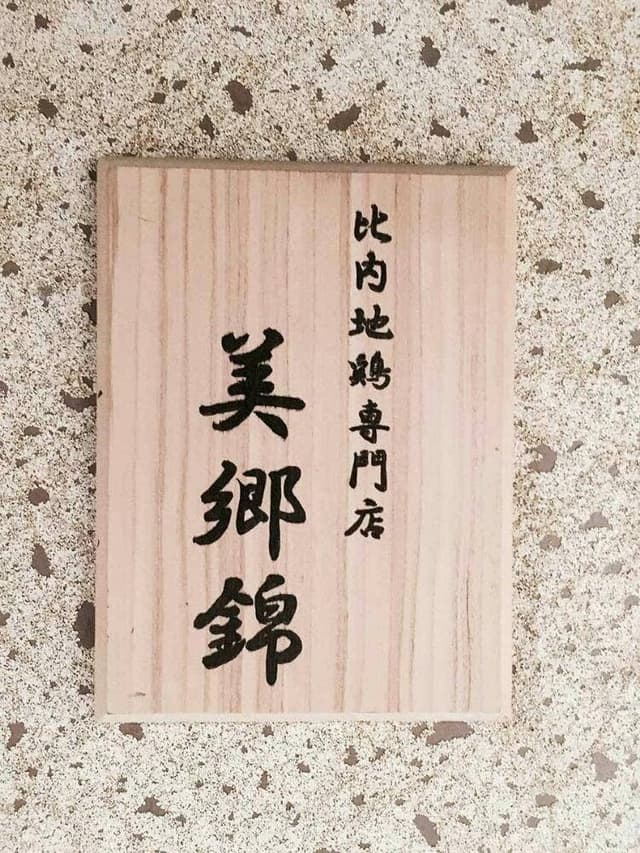 比内地鶏専門店
美郷錦